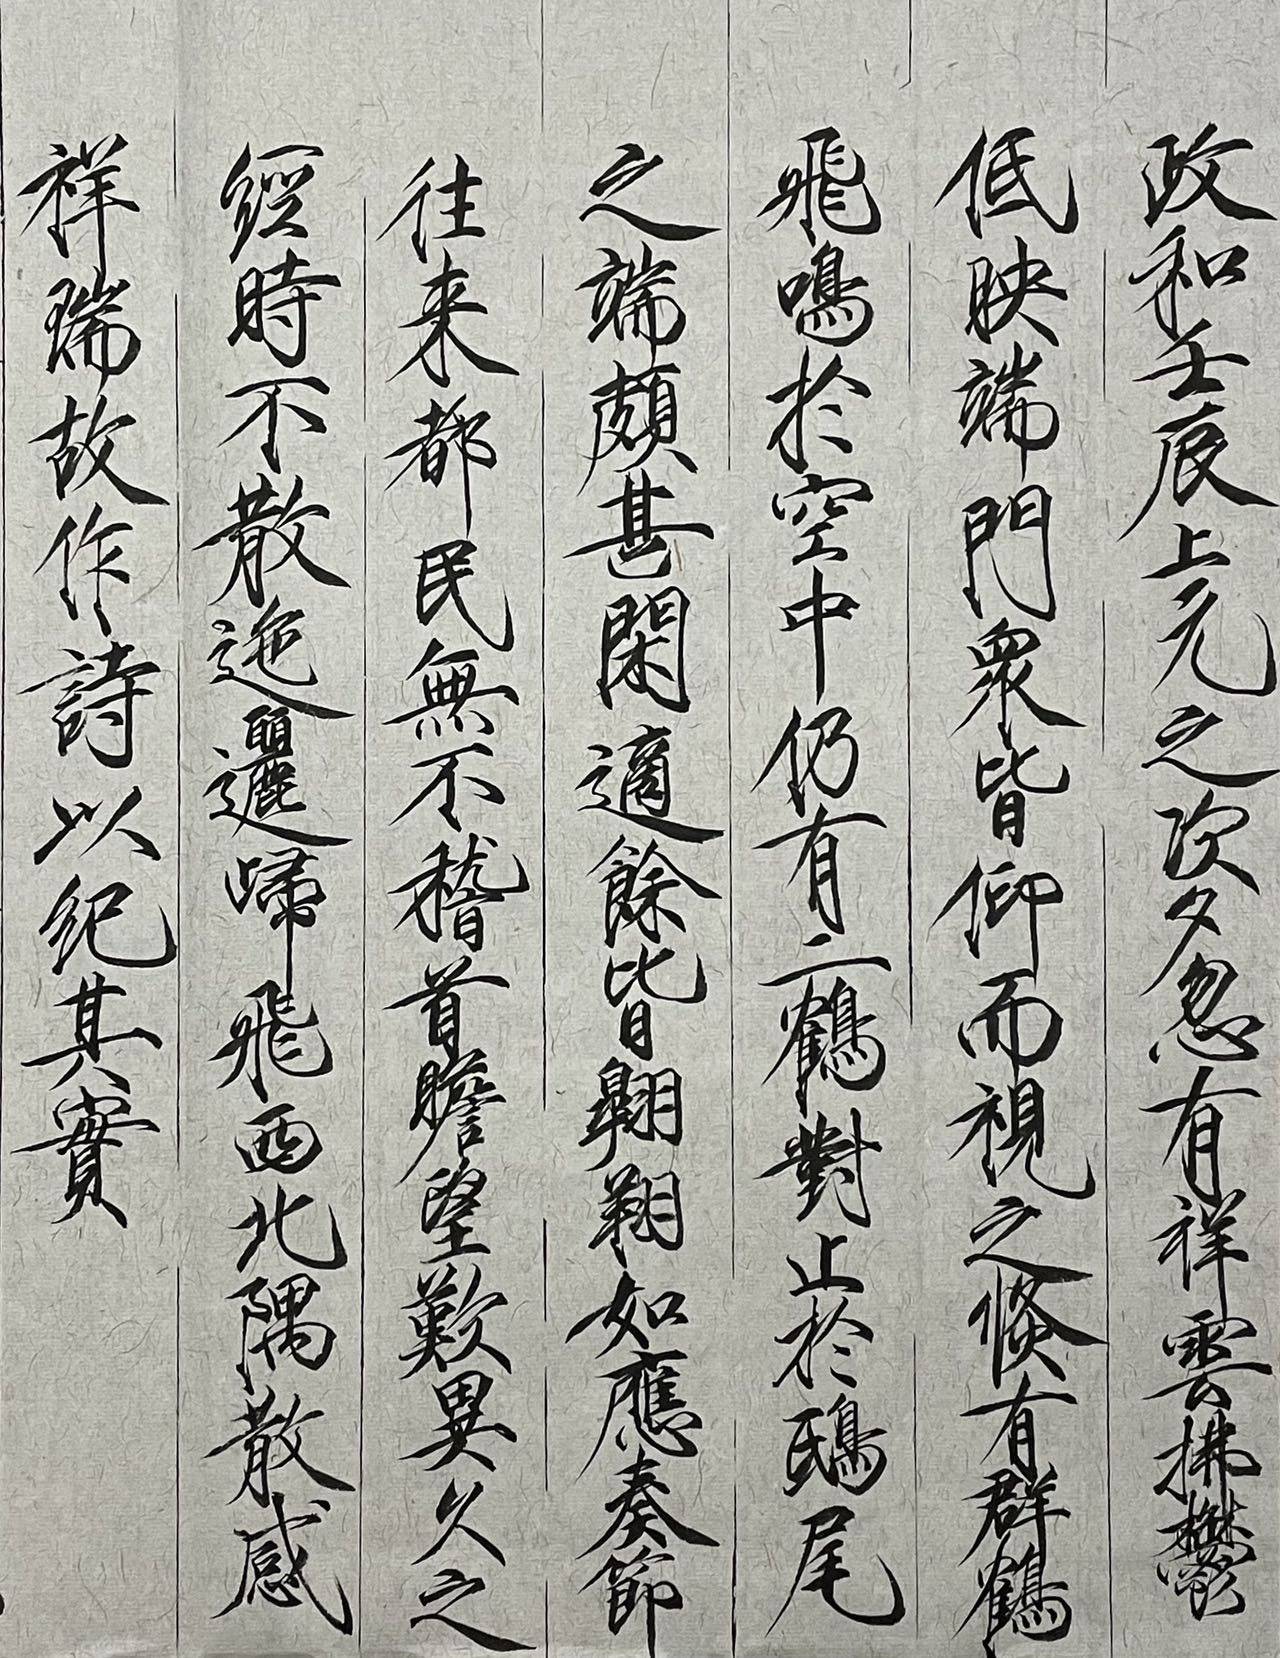 政和壬辰上元之次夕忽有祥雲拂鬱
低映端門衆皆仰而視之倐有群鶴
飛鳴於空中仍有二鶴對止於鴟尾
之端頗甚閑適餘皆翺翔如應奏節
往来都民無不稽首瞻望歎異久之
經時不散迤邐歸飛西北隅散感
祥瑞故作詩以紀其實